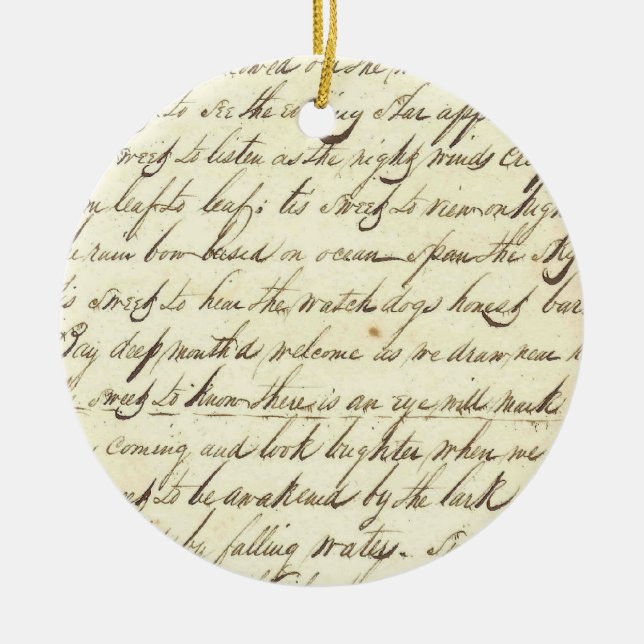 owed on the
to see the evening star app
sweet to listen as the night winds cre
m leaf to leaf; tis sweet to view on high
e rain bow based on ocean span the sky
is sweet to hear the watch dogs honest bar
Bay deep mouth'd welcome as we draw near h
sweet to know there is an eye will mark
coming and look brighter when we
to be awakened by the lark
by falling waters.